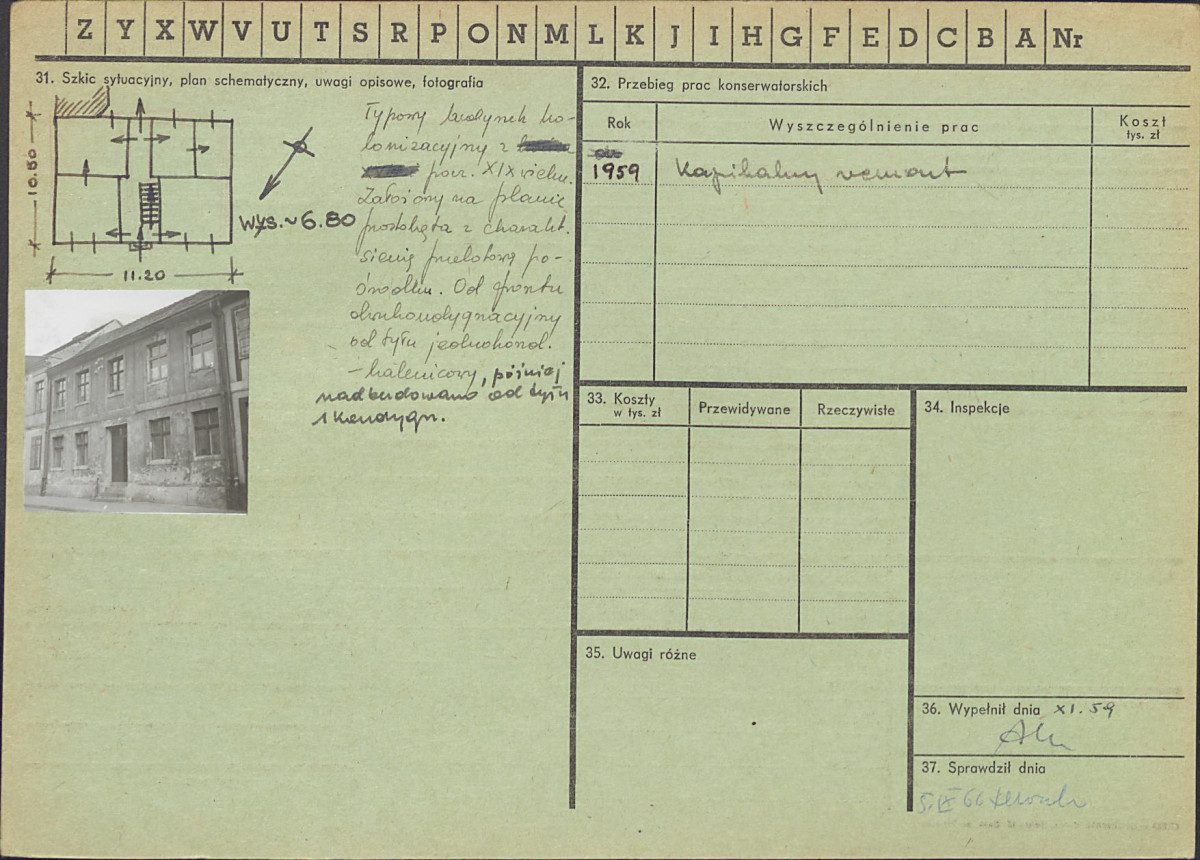 Z Y X W V U T S R P O N M L K J I H G F E D C B A Nr
31. Szkic sytuacyjny, plan schematyczny, uwagi opisowe, fotografia
10.50
11.20
Wys. ~ 6.80
Typowy budynek ko-
lonizacyjny z
pocz. XIX wieku.
Założony na planie
prostokąta z charakt.
sienią przelotową po-
środku. Od frontu
dwukondygnacyjny
od tyłu jednokond.
- kalenicowy, później
nadbudowano od tyłu
1 kondygn.
32. Przebieg prac konserwatorskich
Rok
Wyszczególnienie prac
Koszt
tys. zł
1959 Kapitalny remont
33. Koszty
w tys. zł
Przewidywane
Rzeczywiste
34. Inspekcje
35. Uwagi różne
36. Wypełnił dnia XI.59
37. Sprawdził dnia